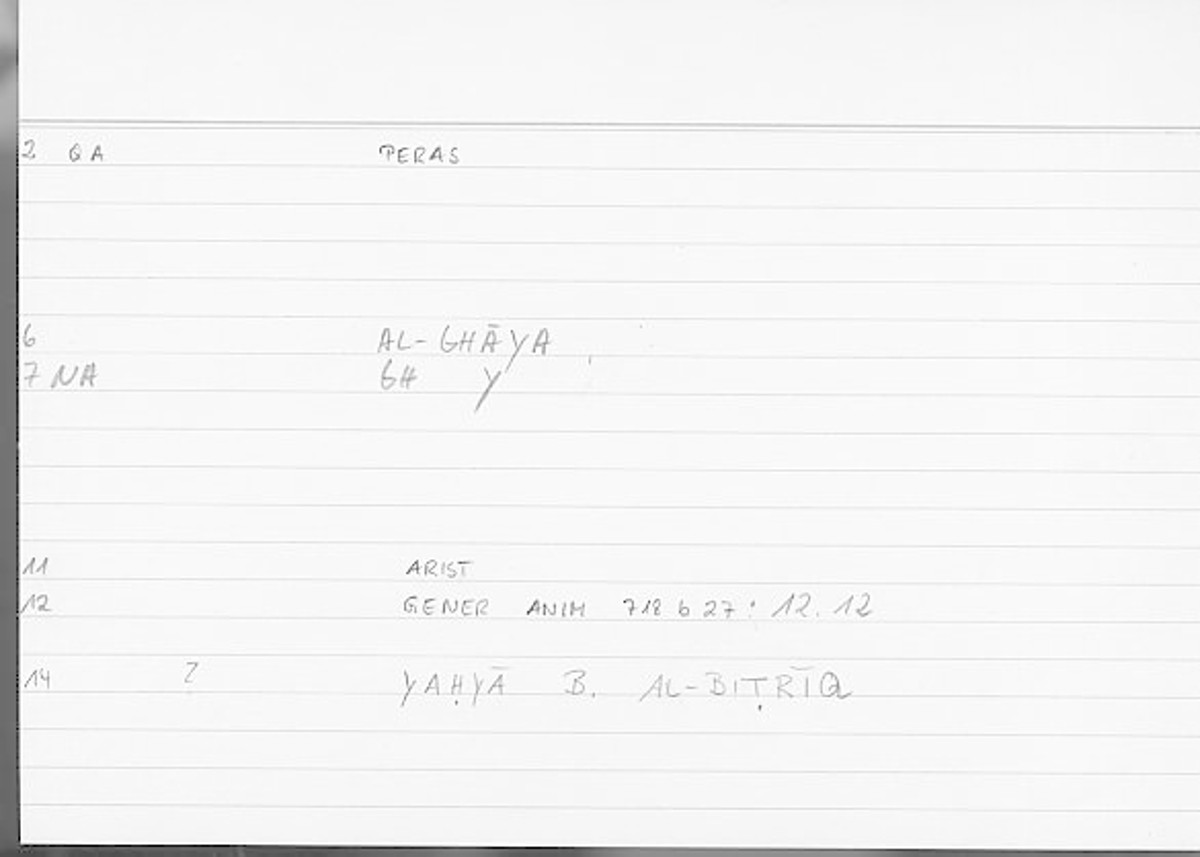 2 QA PERAS
6 AL-GHĀYA
7 NA GH Y
11 ARIST
12 GENER ANIM 718 b 27: 12.12
14 ? YAḤYĀ B. AL-BIṬRĪQ